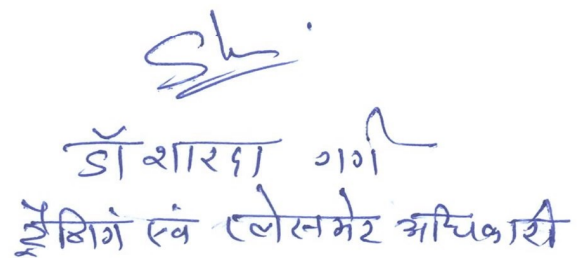 डॉ शारदा गर्ग
ट्रैनिगं एवं प्लेसमेंट अधिकारी